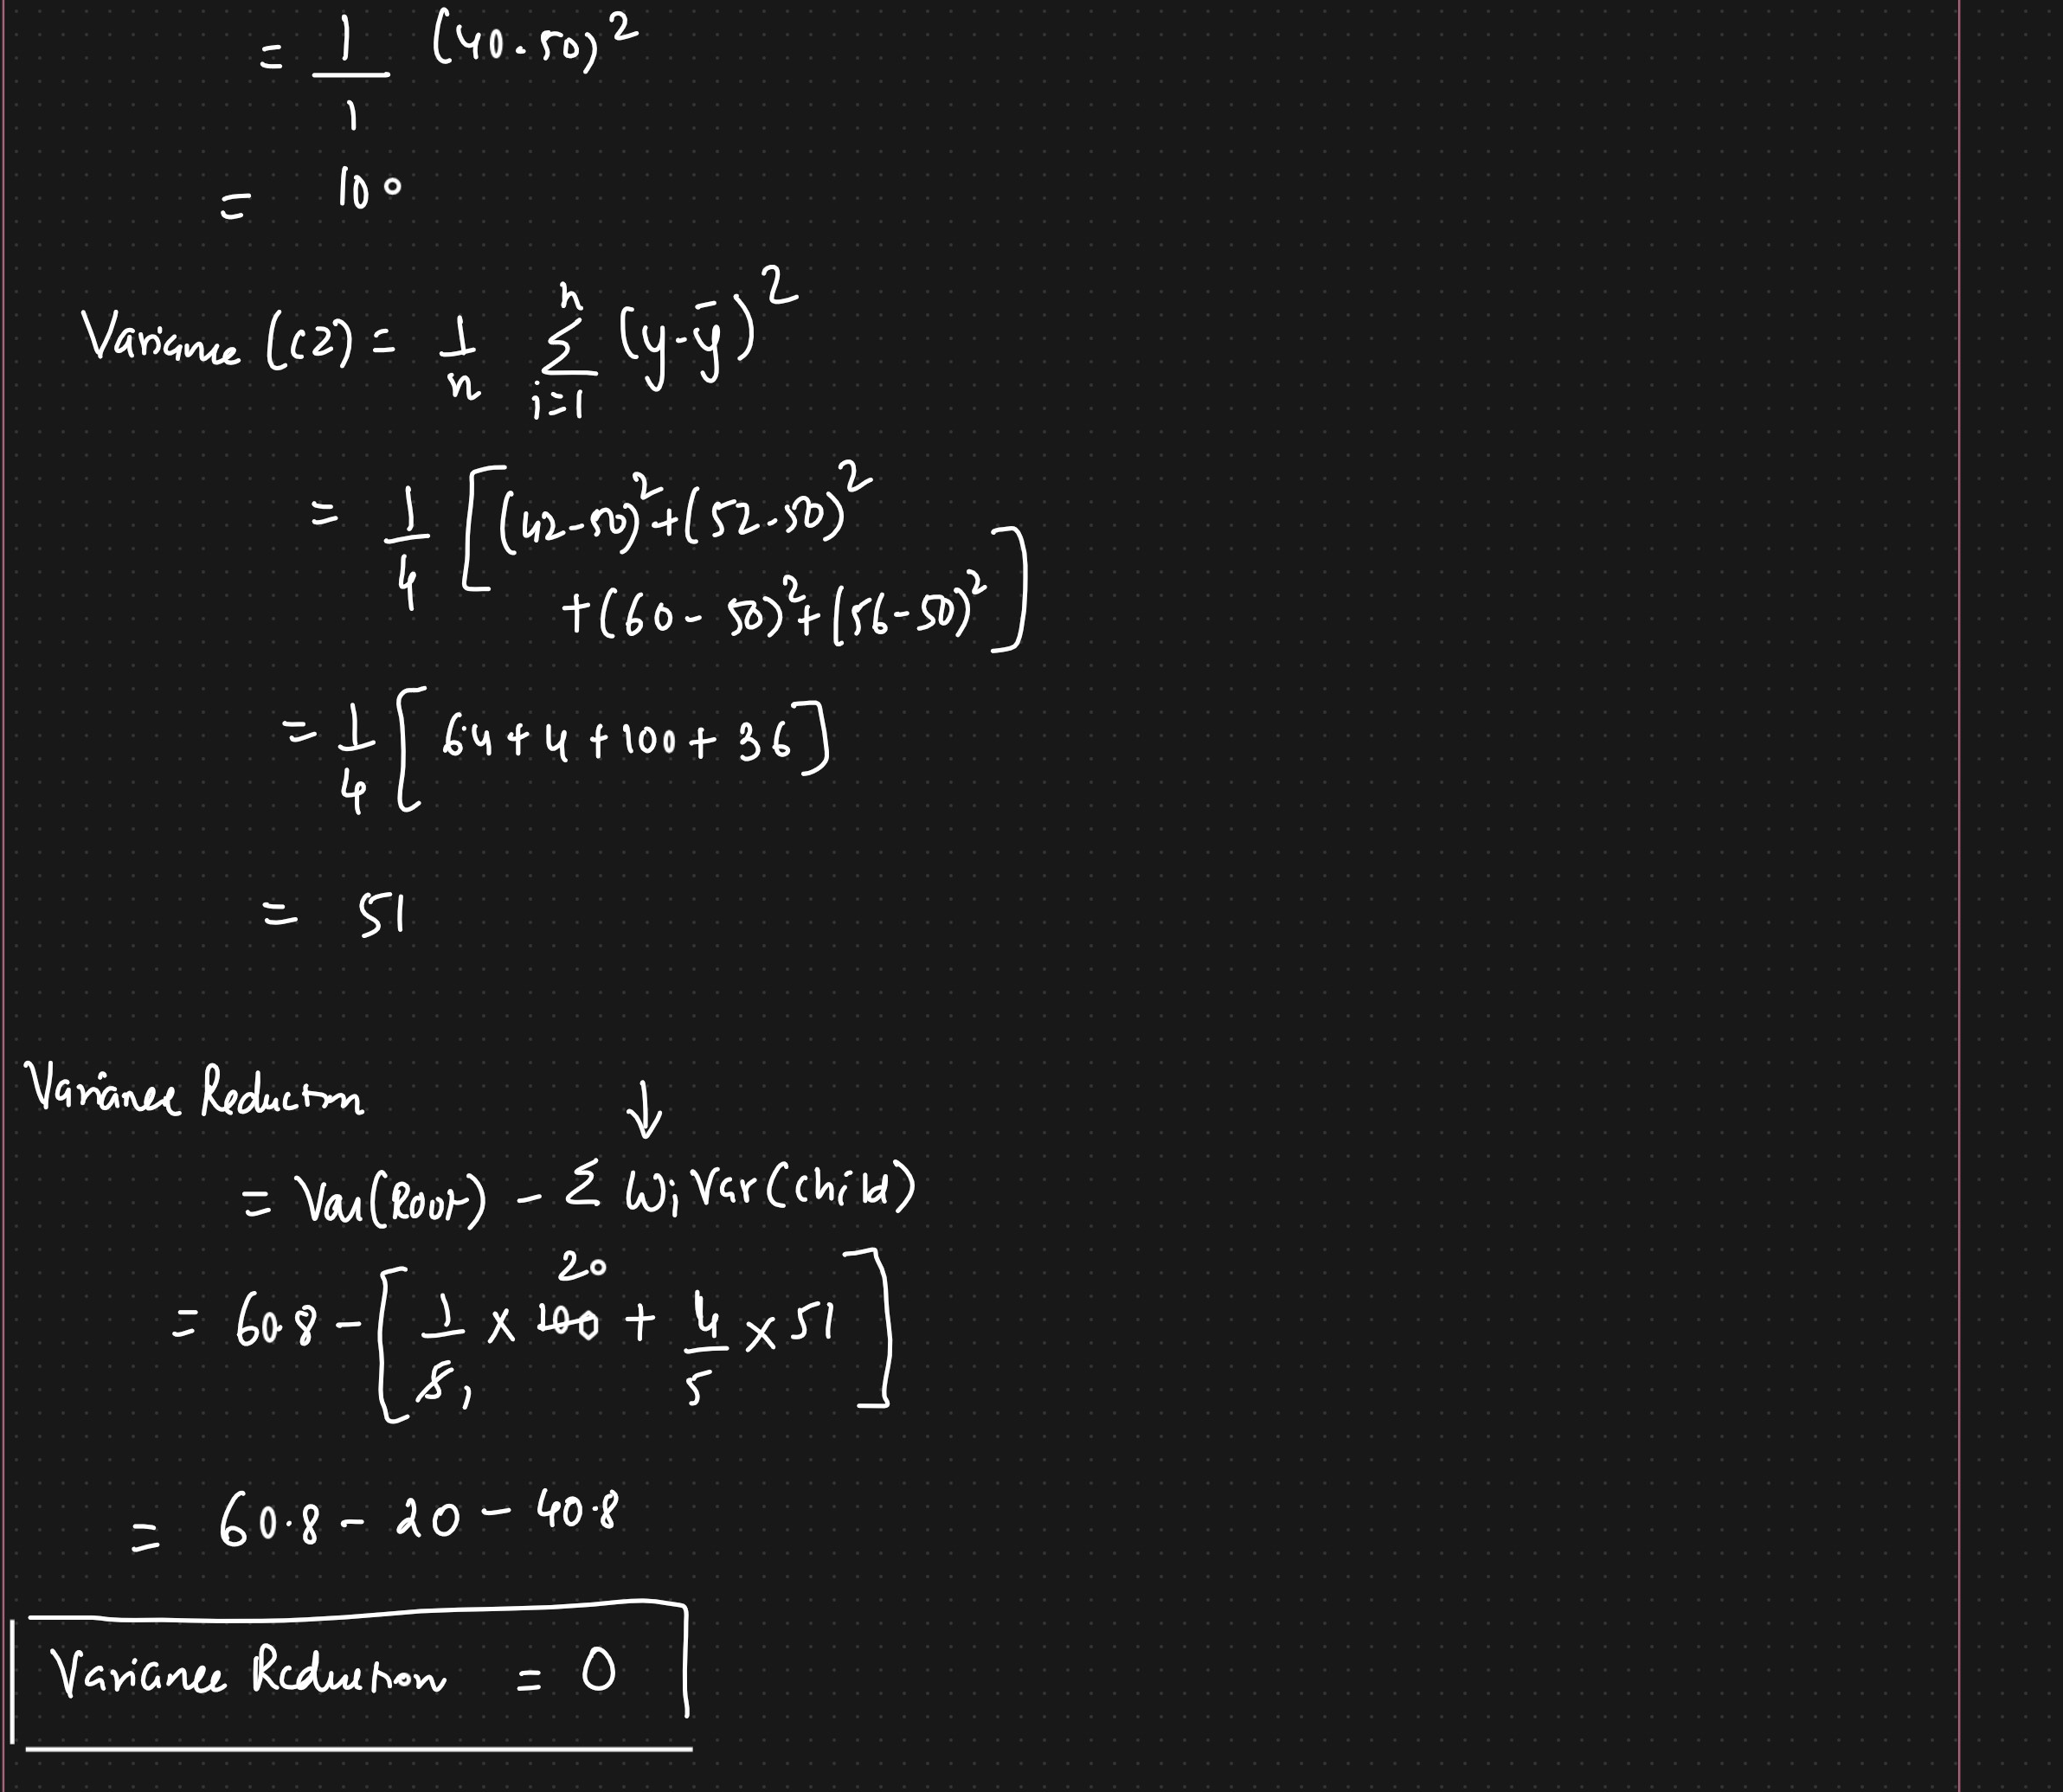 = 1/1 (40-50)²
= 100
Variance (C2) = 1/n Σ_{i=1}^{n} (y-ȳ)²
= 1/4 [(42-50)² + (52-50)²
+ (60-50)² + (56-50)²]
= 1/4 [64 + 4 + 100 + 36]
= 51
Variance Reduction ↓
= Var(Root) - Σ wi Var(child)
20
= 60.8 - [1/5 × 100 + 4/5 × 51]
1
= 60.8 - 20 - 40.8
Variance Reduction = 0